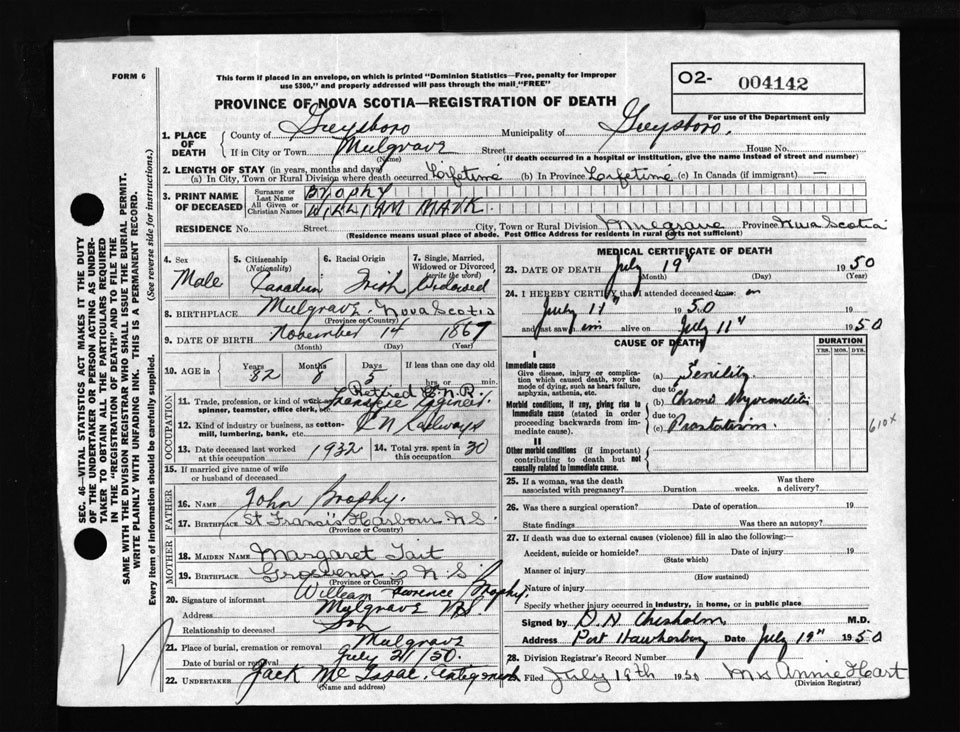 FORM 6
This form if placed in an envelope, on which is printed "Dominion Statistics—Free, penalty for improper
use $300," and properly addressed will pass through the mail "FREE"
O2- 004142
For use of the Department only
PROVINCE OF NOVA SCOTIA—REGISTRATION OF DEATH
1. PLACE OF DEATH
County of Guysboro Municipality of Guysboro.
If in City or Town Mulgrave Street House No.
(Name) (If death occurred in a hospital or institution, give the name instead of street and number)
2. LENGTH OF STAY (in years, months and days)
(a) In City, Town or Rural Division where death occurred Lifetime (b) In Province Lifetime (c) In Canada (if immigrant) —
3. PRINT NAME OF DECEASED
Surname or Last Name Brophy
All Given or Christian Names WILLIAM MARK.
RESIDENCE No. Street City, Town or Rural Division Mulgrave Province Nova Scotia
(Residence means usual place of abode. Post Office Address for residents in rural parts not sufficient)
4. Sex Male
5. Citizenship (Nationality) Canadian
6. Racial Origin Irish
7. Single, Married, Widowed or Divorced (write the word) Widowed
8. BIRTHPLACE Mulgrave, Nova Scotia
(Province or Country)
9. DATE OF BIRTH November 14 1867
(Month) (Day) (Year)
10. AGE in Years 82 Months 8 Days 5 If less than one day old hrs. or min.
OCCUPATION
11. Trade, profession, or kind of work as spinner, teamster, office clerk, etc. Retired C.N.R.
12. Kind of industry or business, as cotton-mill, lumbering, bank, etc. C N Railways
13. Date deceased last worked at this occupation 1932
14. Total yrs. spent in this occupation 30
15. If married give name of wife or husband of deceased
FATHER
16. NAME John Brophy.
17. BIRTHPLACE St Francis Harbour N.S.
(Province or Country)
MOTHER
18. MAIDEN NAME Margaret Tait
19. BIRTHPLACE Grosvenor N.S.
(Province or Country)
20. Signature of informant William Brophy.
Address Mulgrave N.S.
Relationship to deceased Son
21. Place of burial, cremation or removal Mulgrave
Date of burial or removal July 21/50.
22. UNDERTAKER Jack McIsaac, Antigonish
(Name and address)
MEDICAL CERTIFICATE OF DEATH
23. DATE OF DEATH July 19 1950
(Month) (Day) (Year)
24. I HEREBY CERTIFY that I attended deceased from: on
July 11" 1950 to 19
and last saw him alive on July 11" 1950
CAUSE OF DEATH
DURATION
YRS. MOS. DYS.
I
Immediate cause
Give disease, injury or complication which caused death, NOT the mode of dying, such as heart failure, asphyxia, asthenia, etc.
(a) Senility.
due to
Morbid conditions, if any, giving rise to immediate cause (stated in order proceeding backwards from immediate cause).
(b) Chronic Myocarditis
due to
(c) Prostatism.
610x
II
Other morbid conditions (if important) contributing to death but not causally related to immediate cause.
25. If a woman, was the death associated with pregnancy? Duration weeks. Was there a delivery?
26. Was there a surgical operation? Date of operation 19
State findings Was there an autopsy?
27. If death was due to external causes (violence) fill in also the following:
Accident, suicide or homicide? Date of injury 19
(State which)
Manner of injury
(How sustained)
Nature of injury
Specify whether injury occurred in industry, in home, or in public place
Signed by D. N. Chisholm M.D.
Address Port Hawkesbury Date July 19" 1950
28. Division Registrar's Record Number
Filed July 19th 1950 Mrs Annie Hart
(Division Registrar)
SEC. 46—VITAL STATISTICS ACT MAKES IT THE DUTY
OF THE UNDERTAKER OR PERSON ACTING AS UNDER-
TAKER TO OBTAIN ALL THE PARTICULARS REQUIRED
IN THE "REGISTRATION OF DEATH" AND TO FILE THE
SAME WITH THE DIVISION REGISTRAR WHO SHALL ISSUE THE BURIAL PERMIT.
WRITE PLAINLY WITH UNFADING INK. THIS IS A PERMANENT RECORD.
Every item of information should be carefully supplied. (See reverse side for instructions.)